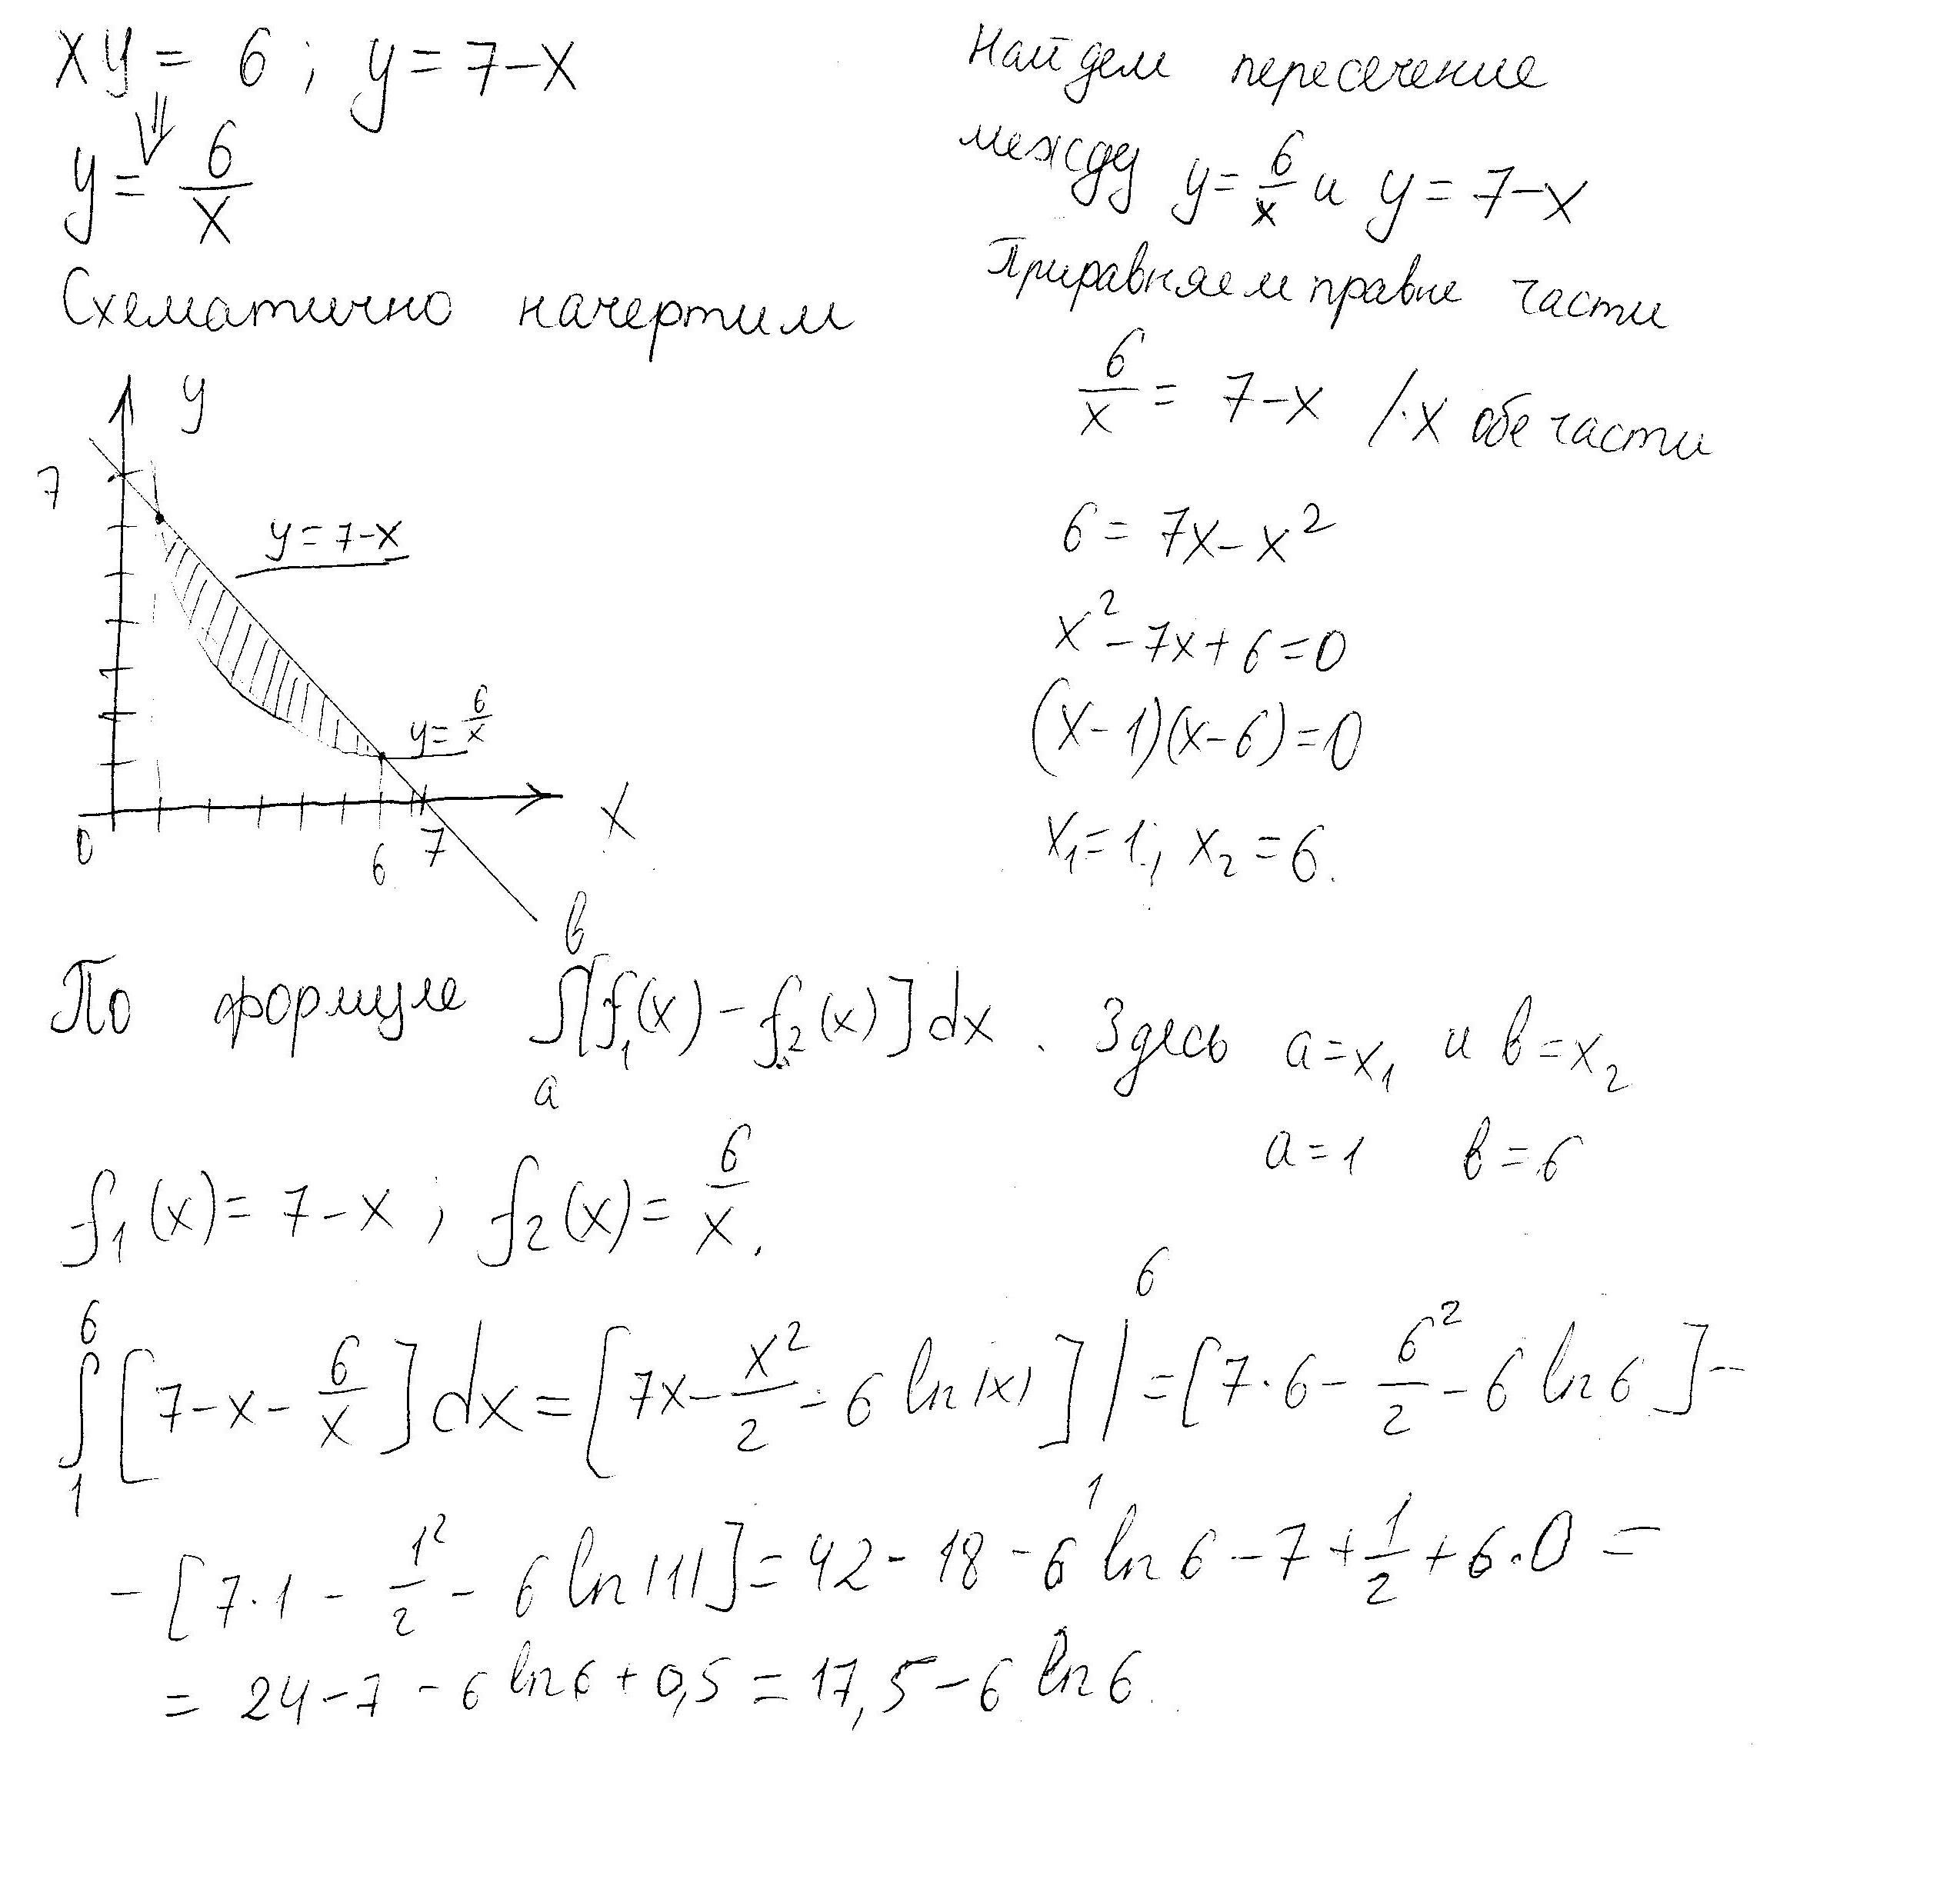 xy = 6 ; y = 7-x
⇓
y = 6/x
Схематично начертим
y
7
y = 7-x
y = 6/x
0
6
7
x
Найдем пересечение
между y = 6/x и y = 7-x
Приравняем правые части
6/x = 7-x /·x обе части
6 = 7x - x²
x² - 7x + 6 = 0
(x-1)(x-6) = 0
x₁ = 1; x₂ = 6.
По формуле ∫ₐᵇ[f₁(x) - f₂(x)]dx. Здесь a = x₁ и b = x₂
a = 1 b = 6
f₁(x) = 7-x ; f₂(x) = 6/x.
∫₁⁶[7-x-6/x]dx = [7x - x²/2 - 6 ln|x|]|₁⁶ = [7·6 - 6²/2 - 6 ln 6] -
- [7·1 - 1²/2 - 6 ln|1|] = 42 - 18 - 6 ln 6 - 7 + 1/2 + 6·0 =
= 24 - 7 - 6 ln 6 + 0,5 = 17,5 - 6 ln 6.